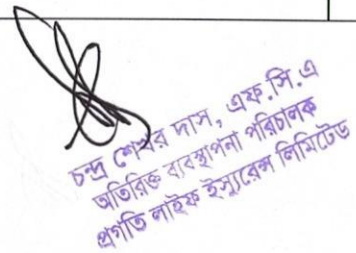 চন্দ্র শেখর দাস, এফ.সি.এ
অতিরিক্ত ব্যবস্থাপনা পরিচালক
প্রগতি লাইফ ইন্স্যুরেন্স লিমিটেড